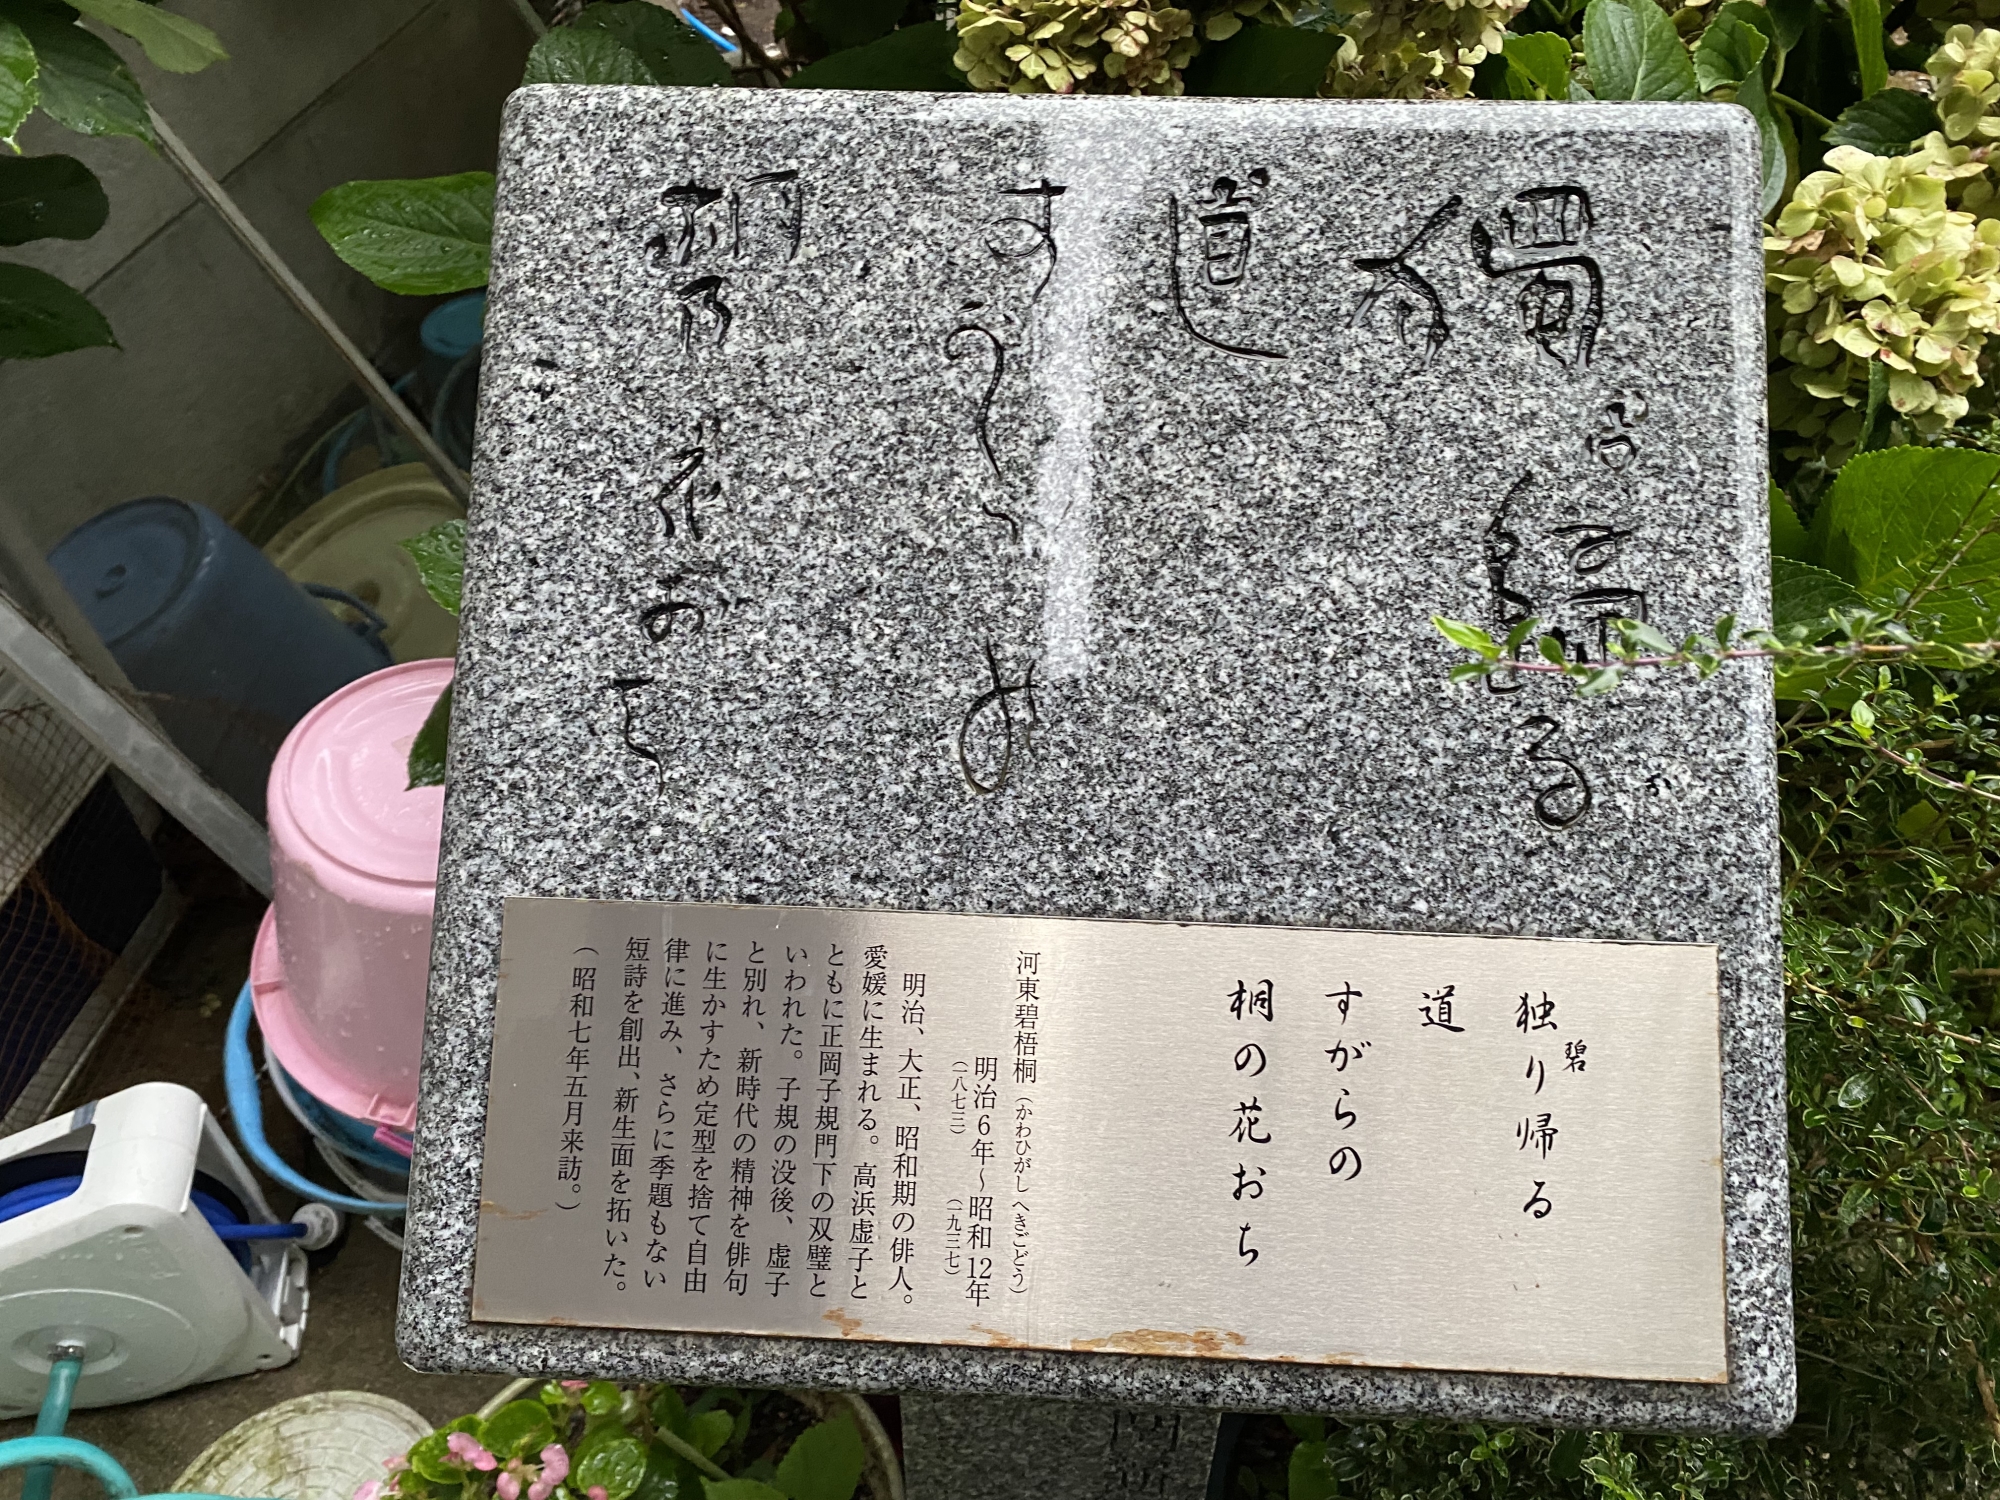 獨り歸る
道
すがらの
桐の花おち
碧
独り帰る
道
すがらの
桐の花おち
河東碧梧桐（かわひがしへきごどう）
明治6年～昭和12年
（一八七三）（一九三七）
明治、大正、昭和期の俳人。
愛媛に生まれる。高浜虚子と
ともに正岡子規門下の双璧と
いわれた。子規の没後、虚子
と別れ、新時代の精神を俳句
に生かすため定型を捨て自由
律に進み、さらに季題もない
短詩を創出、新生面を拓いた。
（昭和七年五月来訪。）